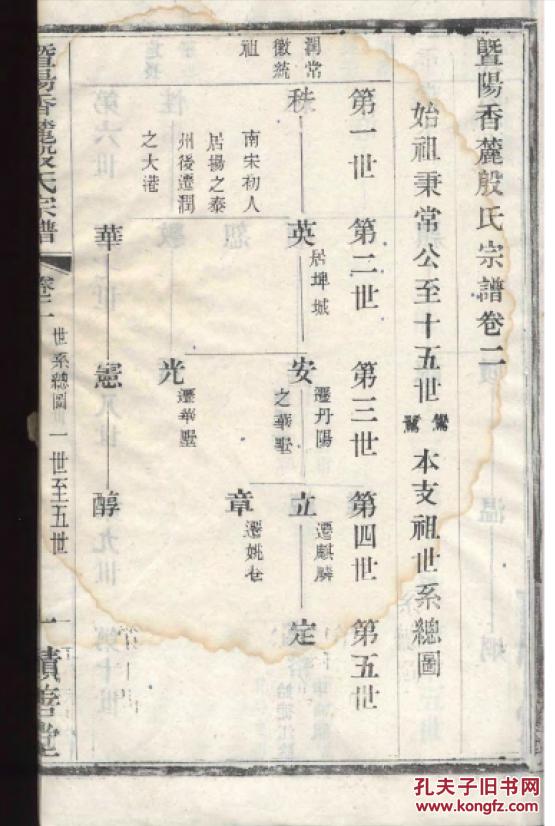 暨陽香麓殷氏宗譜卷二
始祖秉常公至十五世
鴛鴦
本支祖世系總圖
第一世
第二世
第三世
第四世
第五世
潤常
徽統
祖
秩
南宋初人
居揚之泰
州後遷潤
之大港
英
居埤城
安
遷丹陽
之華墅
立
遷麒麟
定
章
遷姚巷
光
遷華墅
華
憲
醇
暨陽香麓殷氏宗譜
卷二
世系總圖
一世至五世
一
積善堂
孔夫子旧书网
www.kongfz.com